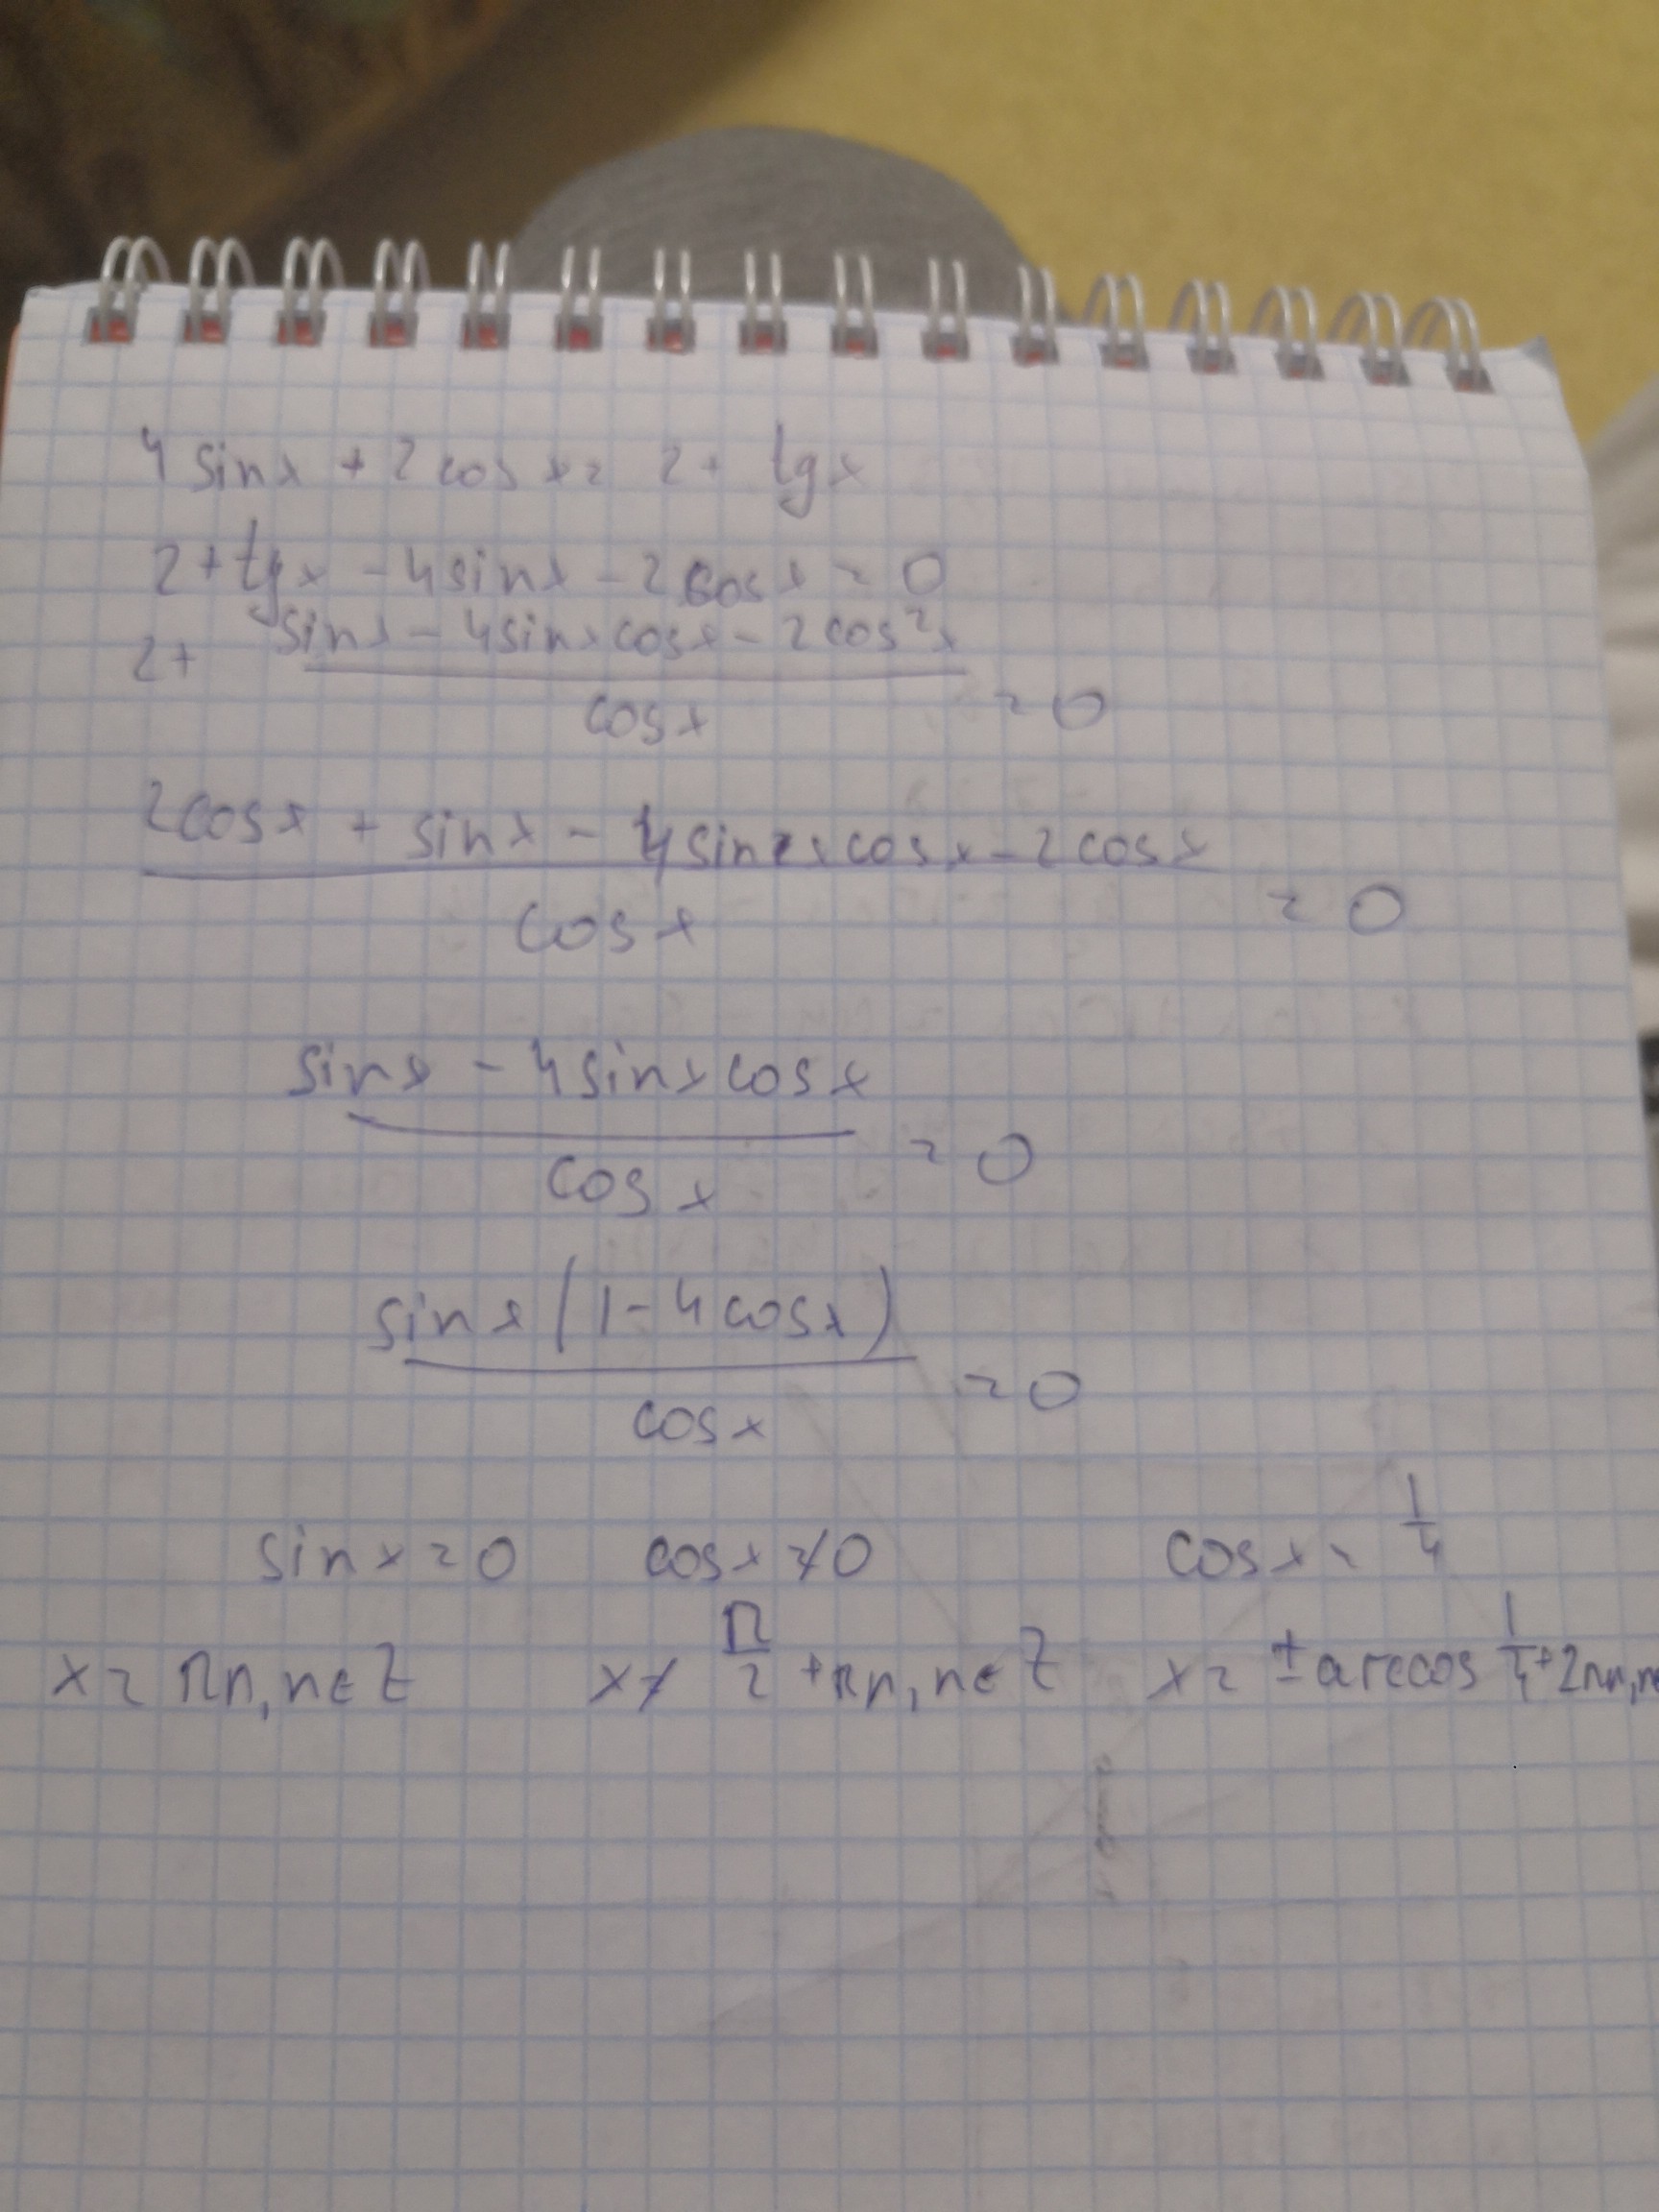 4 sinx + 2 cos x = 2 + tgx
2 + tgx - 4sinx - 2cosx = 0
2 + (sinx - 4sinxcosx - 2cos²x)/cosx = 0
(2cosx + sinx - 4sinxcosx - 2cosx)/cosx = 0
(sinx - 4sinxcosx)/cosx = 0
(sinx(1 - 4cosx))/cosx = 0
sinx = 0 cosx ≠ 0 cosx = 1/4
x = πn, n∈Z x ≠ π/2 + πn, n∈Z x = ± arccos 1/4 + 2πn, n∈